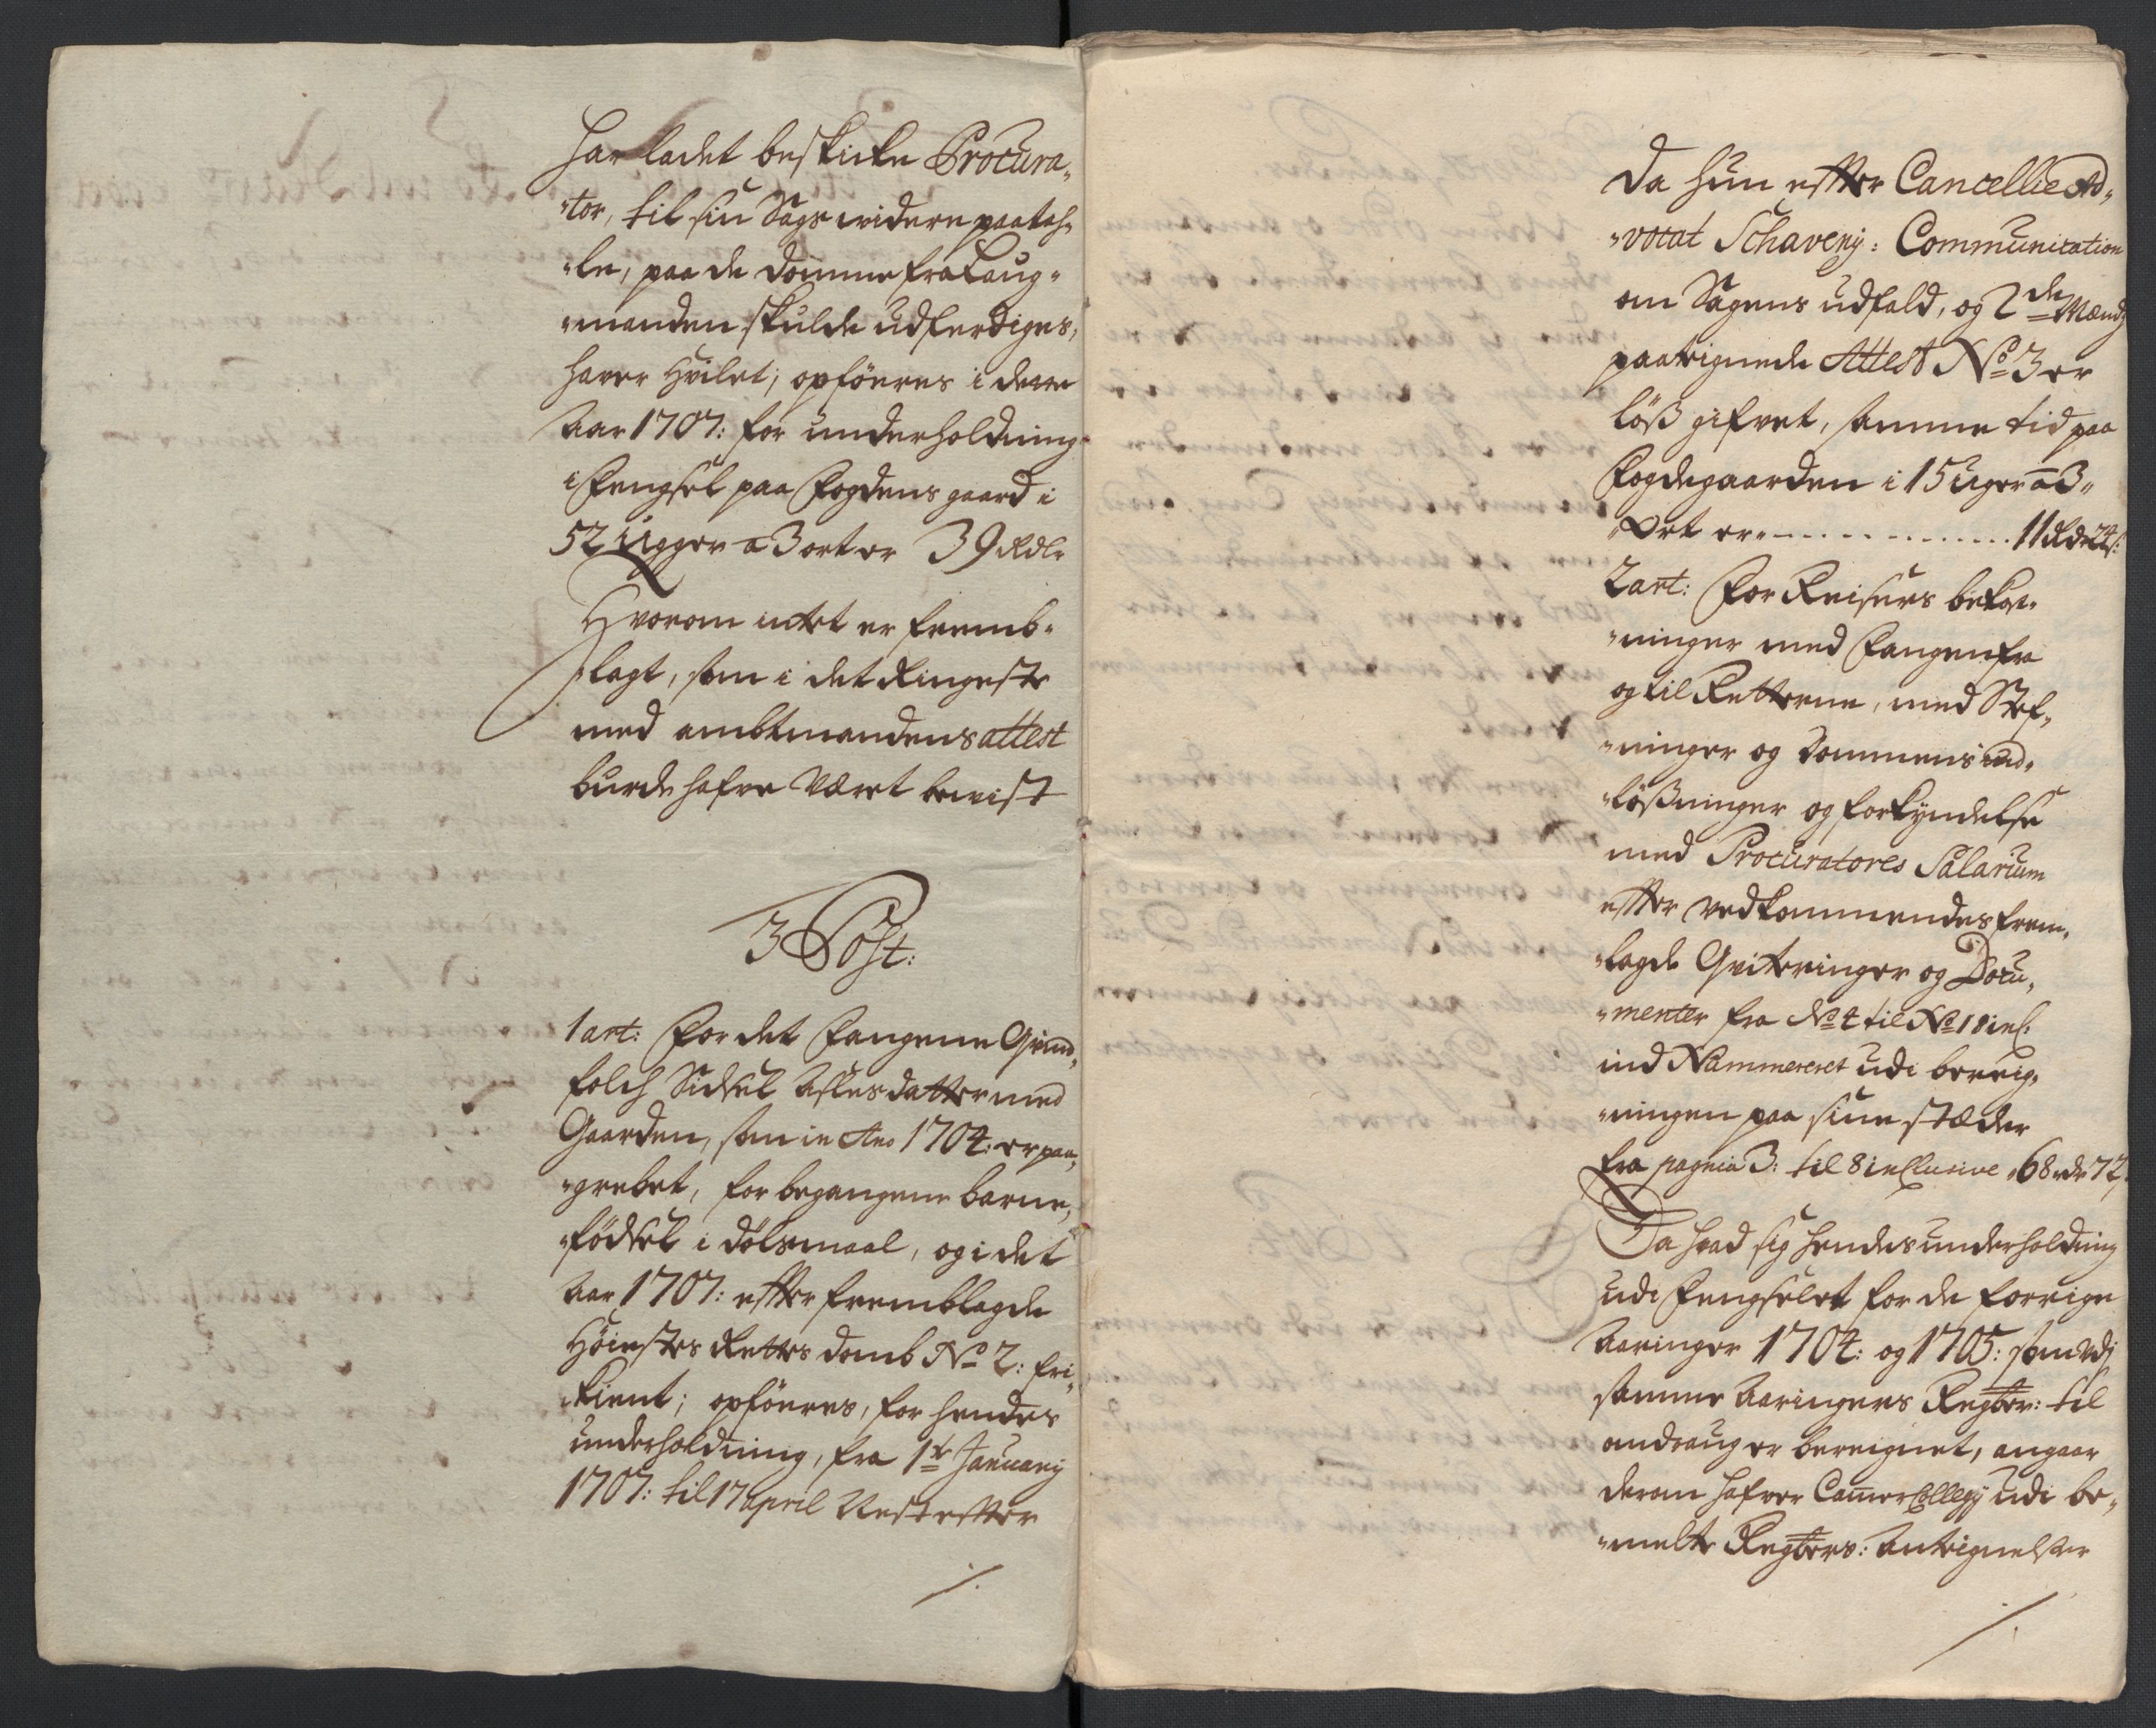 har ladet beskicke Procura„
„tor, til sin Sags widere paatah„
„le, paa de Domme fra Laug„
„manden skulde udferdiges,
harer hvilet; opföeres i dette
Aar 1707: for underholdning
i Fengsel paa Fogdens gaard i
52 Ugger a 3 ort er 39 Rdlr
Hvorom intet er fremb„
lagt, som i det Ringeste
med ambtmandens attest
burde hafve Været bevist
3 Post:
1 art: For det Fangene Qvind„
folch Sidsel Aslesdatter med
Gaarden, som in Ano 1704: er paa„
„grebet, for begangene barne„
„födsel i dölsmaal, og i det
Aar 1707: efter fremblagde
Höiestes Rettes domb No 2: fri„
„kient; opföeres, for hendes
underholdning, fra 1te January
1707: til 17 april Nest efter
/.
Da hun efter Cancellie Ad„
„vocat Schaveny: Communication
om Sagens udfald, og 2de Mænds
paategnede Attest No 3 er
löß gifvet, samme tid paa
Fogdegaarden i 15 Uger a 3„
„Ort er „ - - - - - - 11 Rdr 24 s:
2 art: For Reisers bekost„
„ninger med Fangen fra
og til Retterne, med Stef„
„ninger og Dommens ind„
„lößninger og forkyndelse
med Procuratores Salarium
efter vedkommendes frem„
„lagde Qviteringer og Docu„
„menter fra No 4 til No 18 incl:
ind Nammereret udi bereig„
„ningen paa sine stæder
fra pagina 3: til 8 inclusive „ 68 rdr 72
Da hvad sig hendes underholdning
udi Fengselet for de forrige
Aaringer 1704: og 1705: som udj
samme Aaringers Regster: til
andraug er bereignet, angaar
derom hafver Camer Collegy udi be„
„melte Regsters: Antegnelser
/.